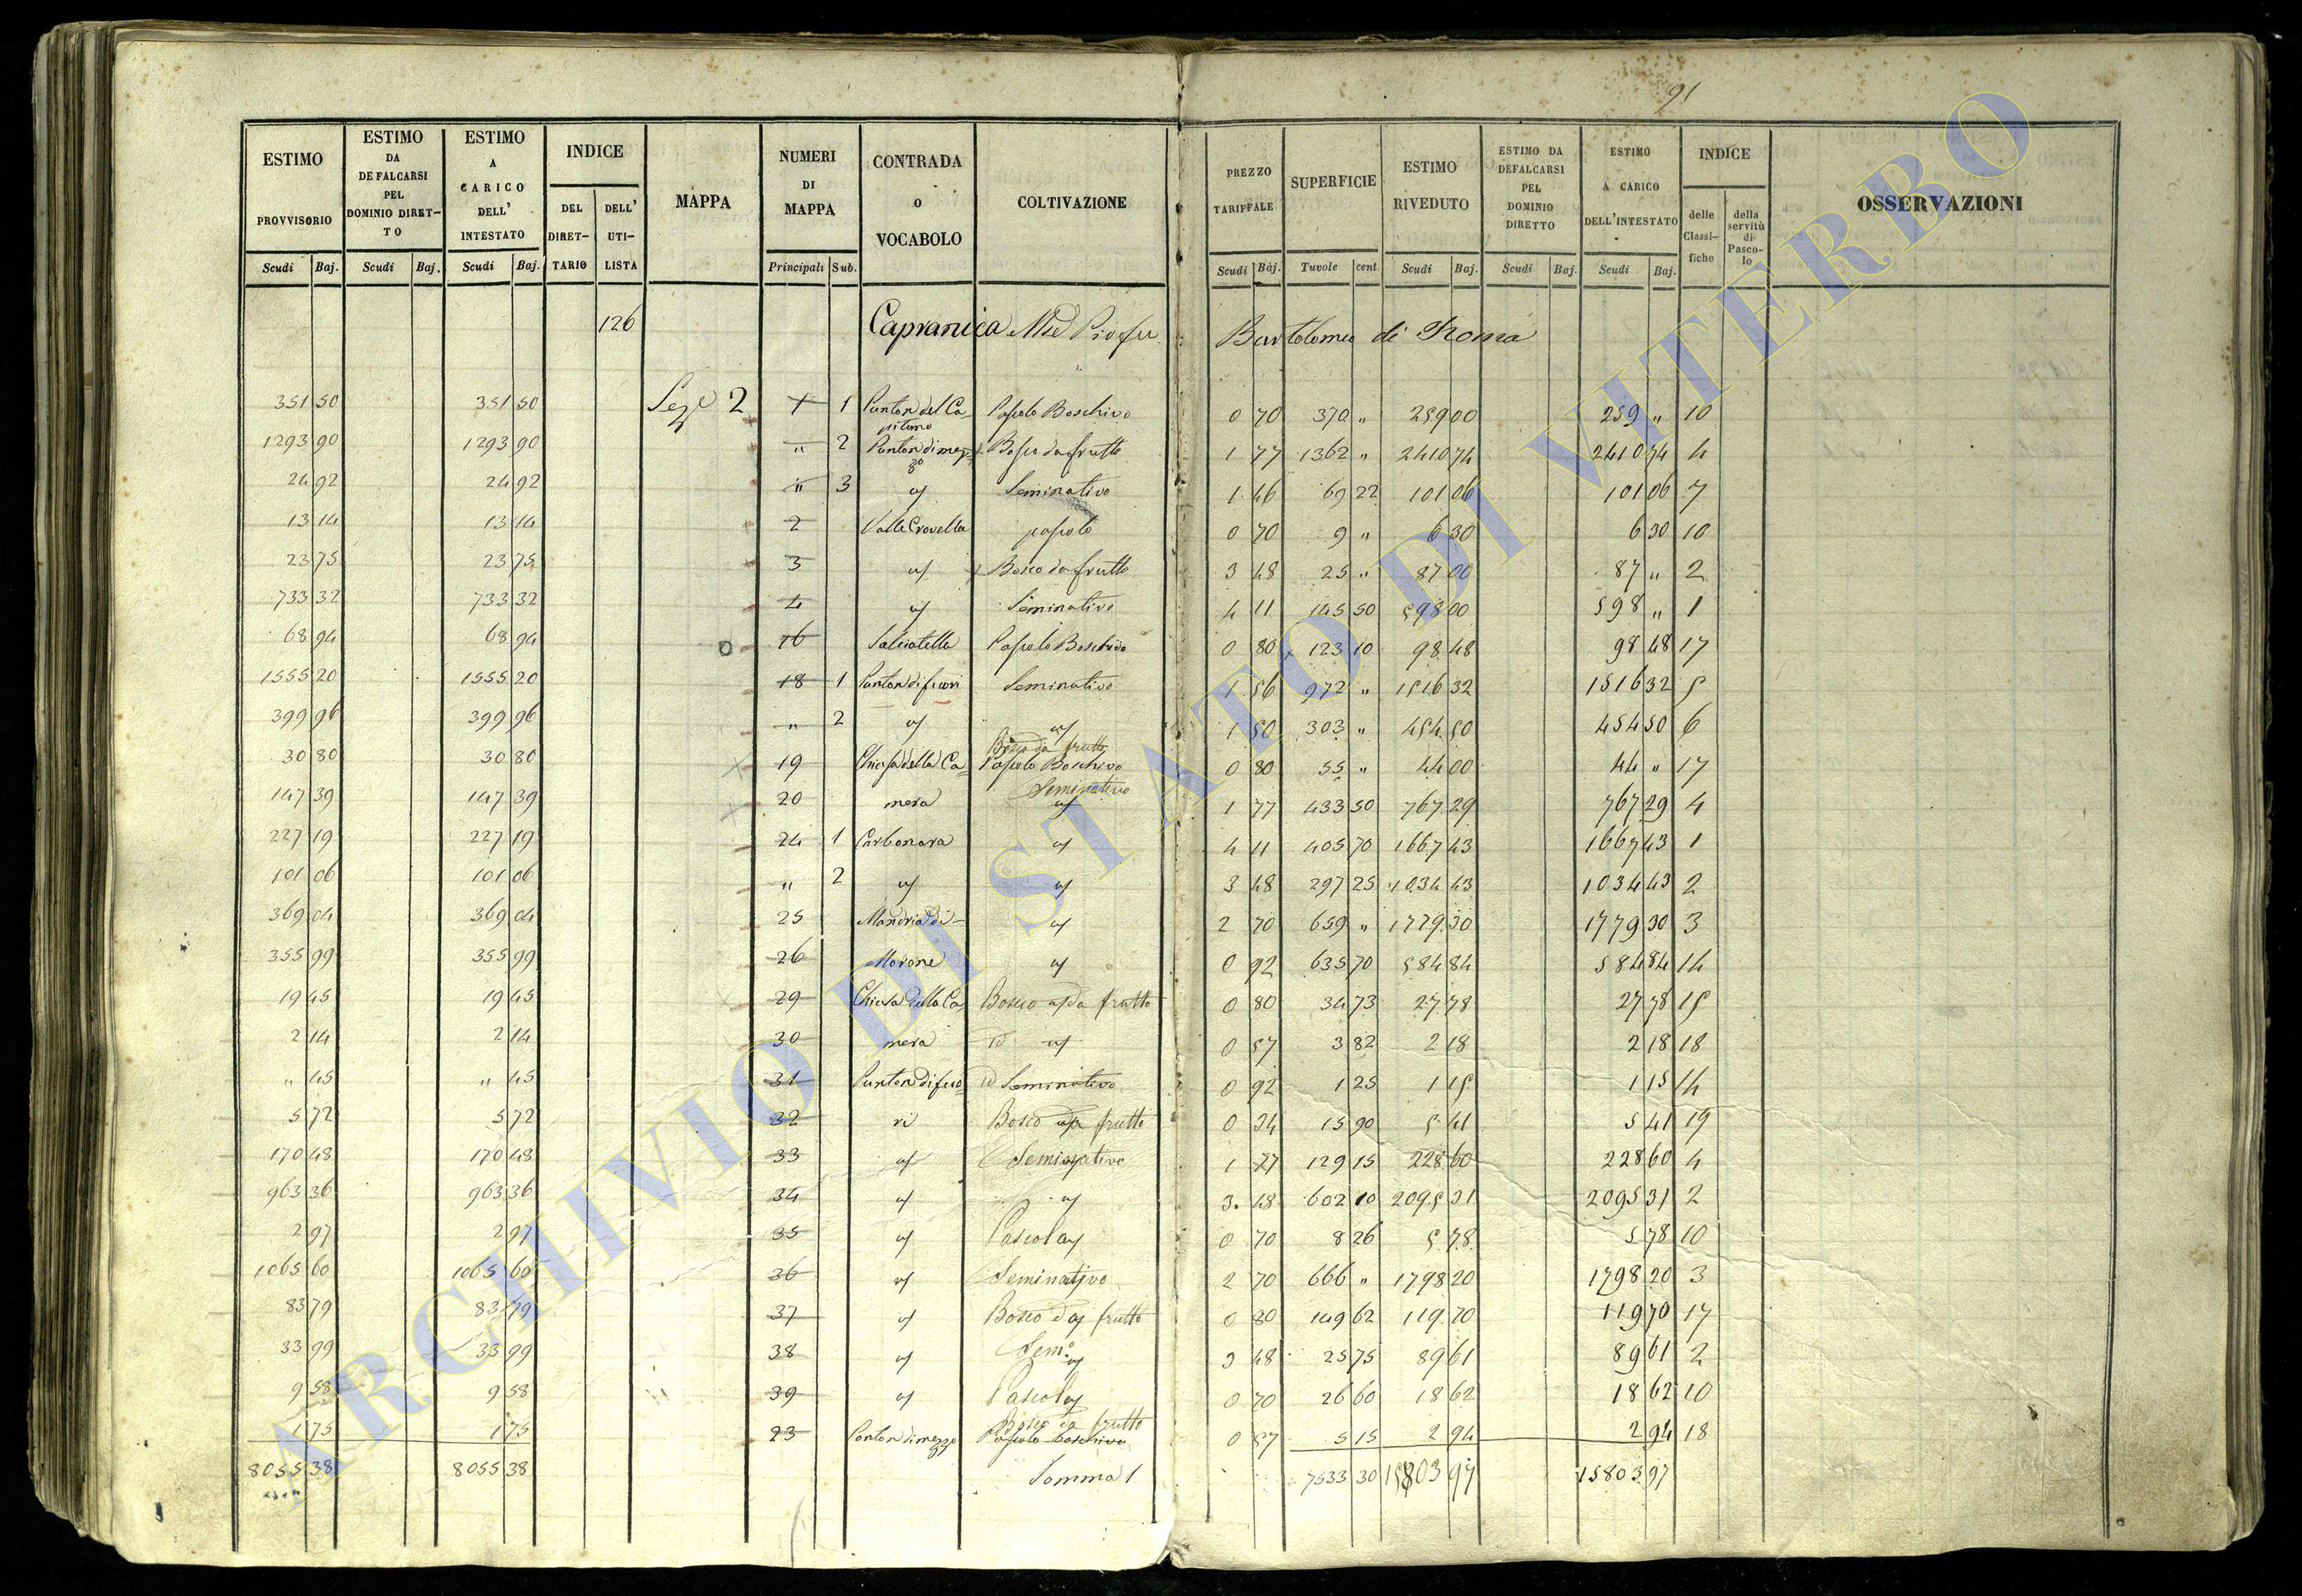 91
ESTIMO PROVVISORIO Scudi Baj.
ESTIMO DA DEFALCARSI PEL DOMINIO DIRETTO Scudi Baj.
ESTIMO A CARICO DELL' INTESTATO Scudi Baj.
INDICE DEL DIRETTARIO DELL' UTILISTA
MAPPA
NUMERI DI MAPPA Principali Sub.
CONTRADA o VOCABOLO
COLTIVAZIONE
PREZZO TARIFFALE Scudi Baj.
SUPERFICIE Tavole cent.
ESTIMO RIVEDUTO Scudi Baj.
ESTIMO DA DEFALCARSI PEL DOMINIO DIRETTO Scudi Baj.
ESTIMO A CARICO DELL'INTESTATO Scudi Baj.
INDICE delle Classifiche della servitù di Pascolo
OSSERVAZIONI
126 Capranica Pio fu Bartolomeo di Roma
351 50 351 50 Seze 2 1 1 Punton del Capitano Pascolo Boschivo 0 70 370 " 259 00 259 " 10
1293 90 1293 90 " 2 Punton di mezzo Bosco da frutto 1 77 1362 " 2410 74 2410 74 4
24 92 24 92 " 3 Seminativo 1 46 69 22 101 06 101 06 7
13 14 13 14 2 Valle Crovella pascolo 0 70 9 " 6 30 6 30 10
23 75 23 75 3 Bosco da frutto 3 48 25 " 87 00 87 " 2
733 32 733 32 4 Seminativo 4 11 145 50 598 00 598 " 1
68 94 68 94 16 Salciatella Pascolo Boschivo 0 80 123 10 98 48 98 48 17
1555 20 1555 20 18 1 Punton di fuori Seminativo 1 56 972 " 1516 32 1516 32 5
399 96 399 96 " 2 1 50 303 " 454 50 454 50 6
30 80 30 80 19 Chiusa della Ca= Bosco da frutto Pascolo Boschivo 0 80 55 " 44 00 44 " 17
147 39 147 39 20 mera Seminativo 1 77 433 50 767 29 767 29 4
227 19 227 19 24 1 Carbonara 4 11 405 70 1667 43 1667 43 1
101 06 101 06 " 2 3 48 297 25 1034 43 1034 43 2
369 04 369 04 25 Mandria di 2 70 659 " 1779 30 1779 30 3
355 99 355 99 26 Morone 0 92 635 70 584 84 584 84 14
19 45 19 45 29 Chiusa della Ca= Bosco da frutto 0 80 34 73 27 78 27 78 15
2 14 2 14 30 mera 0 57 3 82 2 18 2 18 18
" 45 " 45 31 Punton di fuo= Seminativo 0 92 1 25 1 15 1 15 14
5 72 5 72 32 ri Bosco da frutto 0 34 15 90 5 41 5 41 19
170 48 170 48 33 Seminativo 1 77 129 15 228 60 228 60 4
963 36 963 36 34 3 48 602 10 2095 31 2095 31 2
2 97 2 97 35 Pascolo 0 70 8 26 5 78 5 78 10
1065 60 1065 60 36 Seminativo 2 70 666 " 1798 20 1798 20 3
83 79 83 79 37 Bosco da frutto 0 80 149 62 119 70 119 70 17
33 99 33 99 38 Sem.º 3 48 25 75 89 61 89 61 2
9 58 9 58 39 Pascolo 0 70 26 60 18 62 18 62 10
1 75 1 75 23 Punton di mezzo Bosco da frutto Pascolo boschivo 0 57 5 15 2 94 2 94 18
8055 38 8055 38 Somma 1 7533 30 15803 97 15803 97
ARCHIVIO DI STATO DI VITERBO